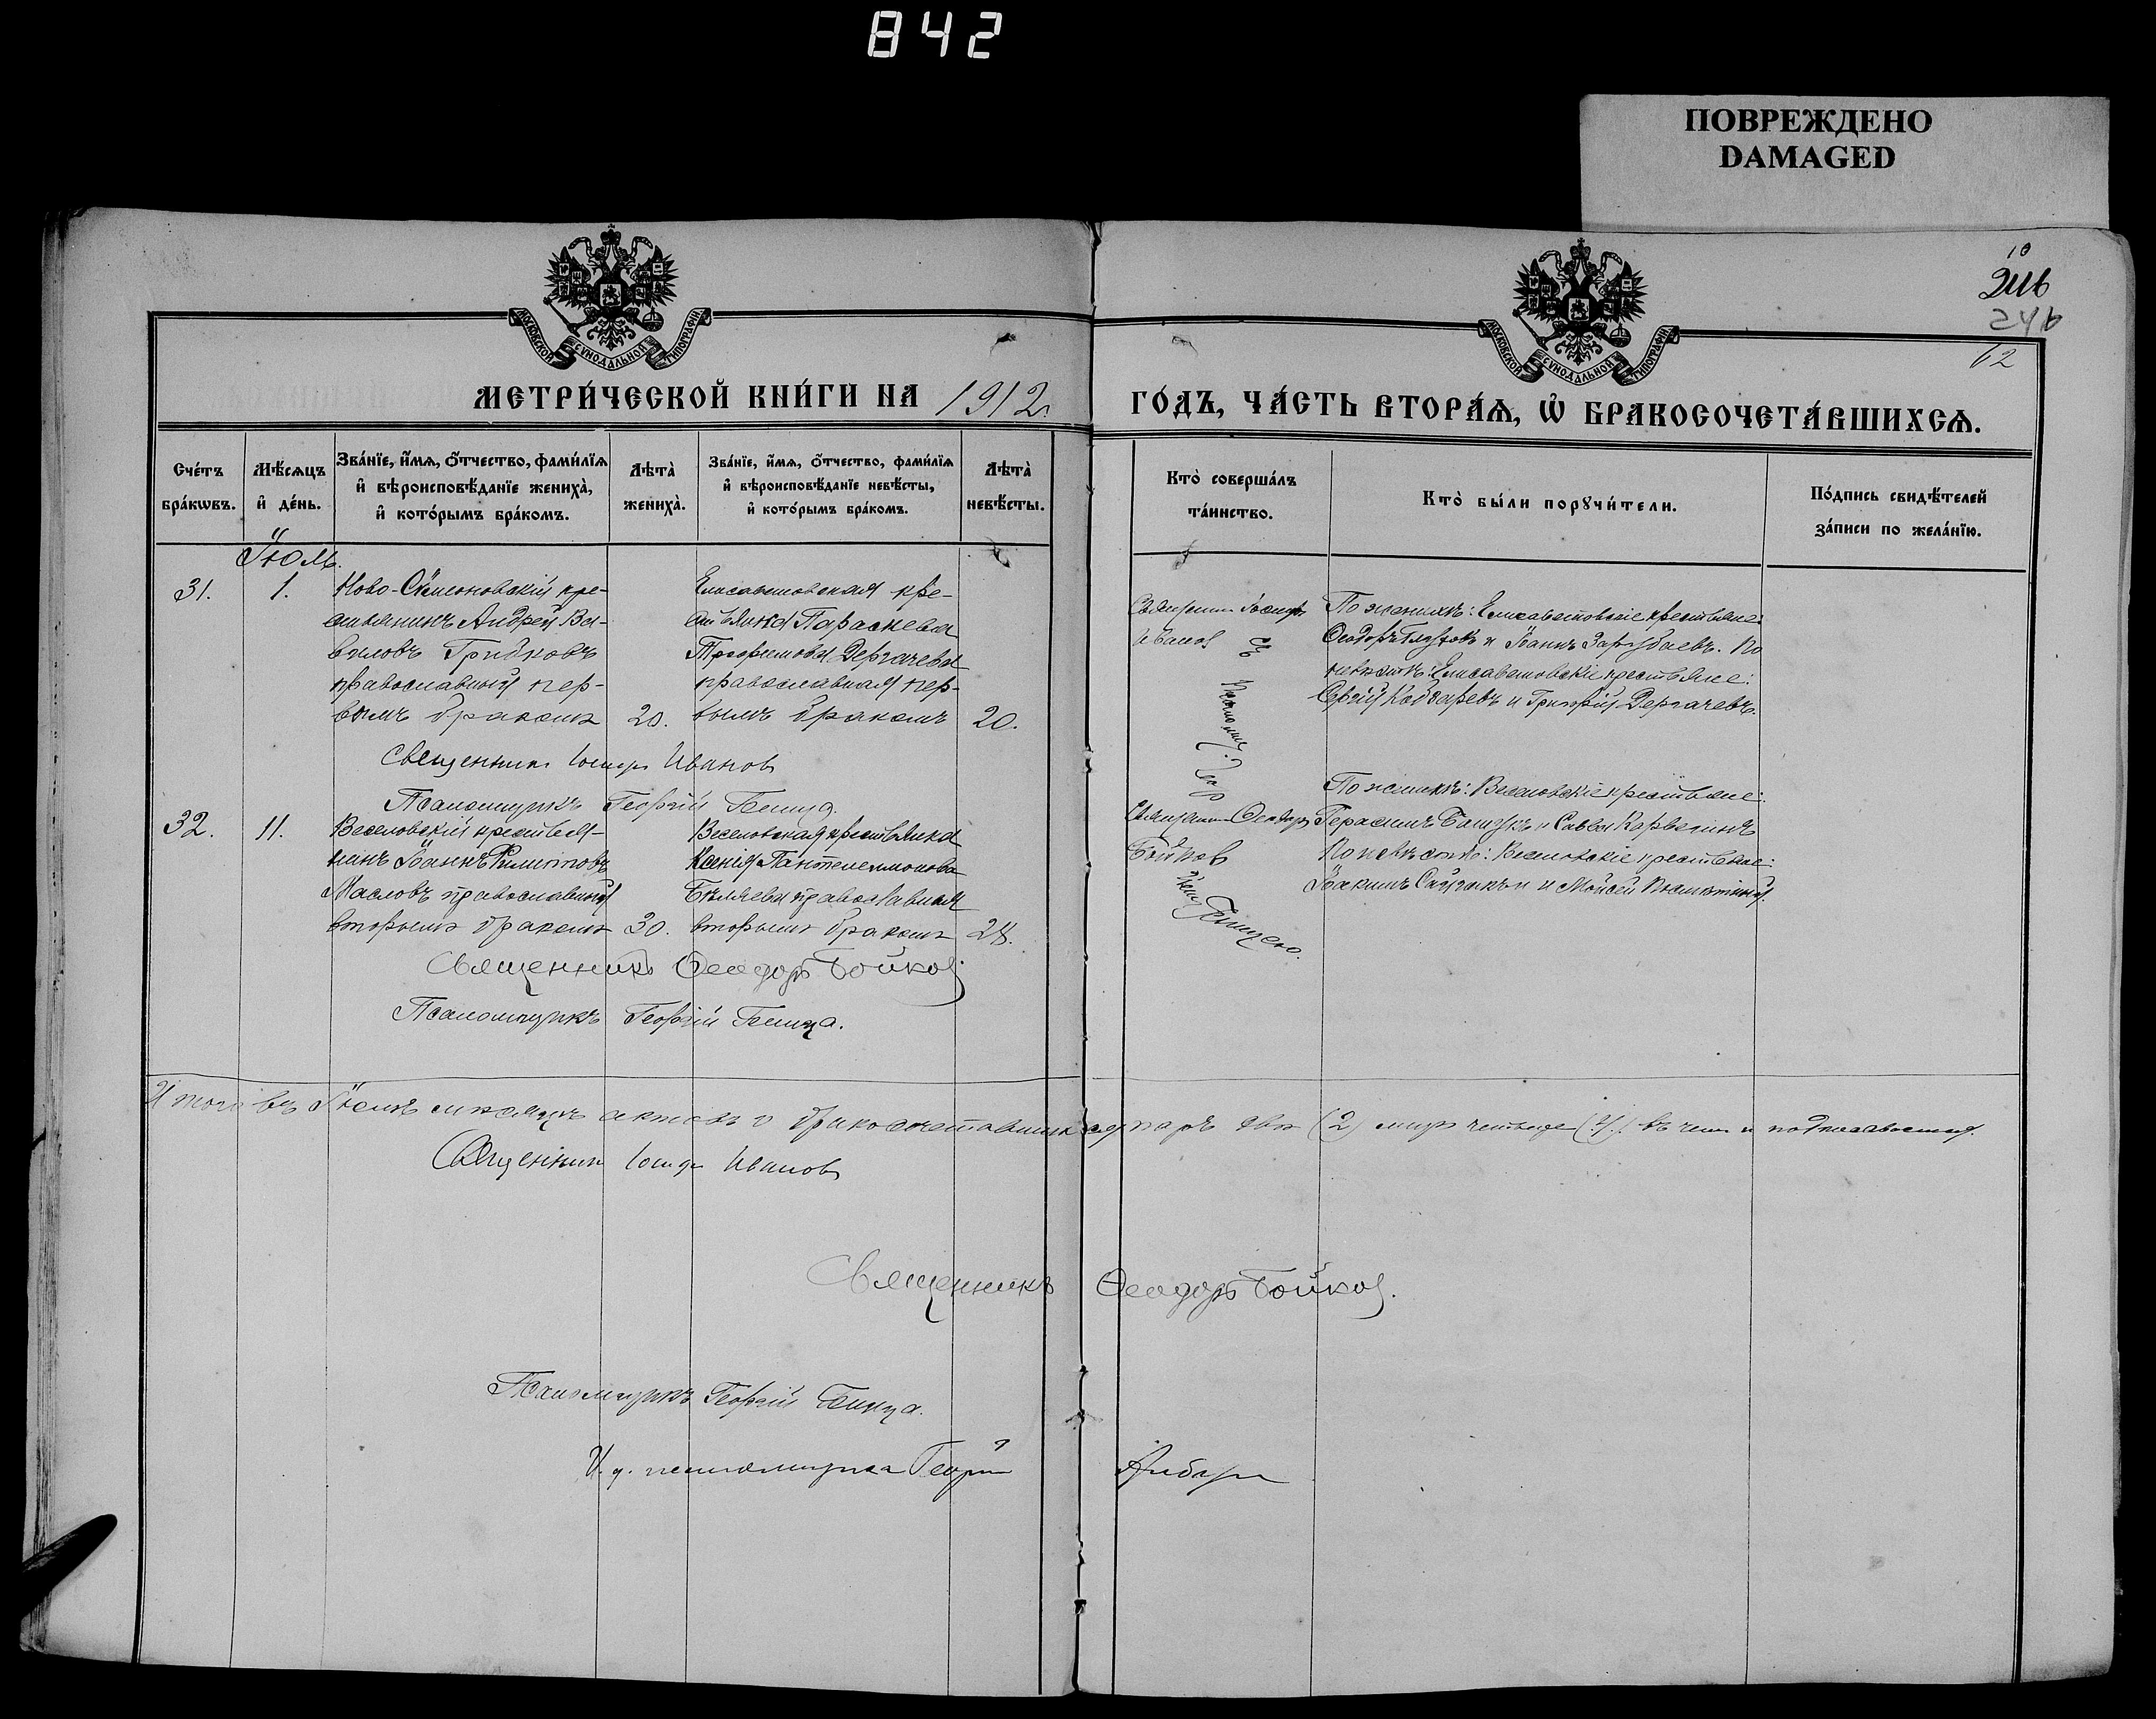 842
ПОВРЕЖДЕНО
DAMAGED
10
246
246
62
МОСКОВСКОЙ СѴНОДАЛЬНОЙ ТИПОГРАФІИ
МОСКОВСКОЙ СѴНОДАЛЬНОЙ ТИПОГРАФІИ
МЕТРИ́ЧЕСКОЙ КНИ́ГИ НА 1912 г.
ГО́ДЪ, ЧА́СТЬ ВТОРА́Ѧ, Ѡ҆ БРАКОСОЧЕТА́ВШИХСѦ.
Сче́тъ бра́кѡвъ.
Мѣ́сѧцъ и҆ де́нь.
Зва́нїе, и҆́мѧ, ѻ҆́тчество, фами́лїѧ и҆ вѣроисповѣ́данїе жениха̀, и҆ кото́рымъ бра́комъ.
Лѣта̀ жениха̀.
Зва́нїе, и҆́мѧ, ѻ҆́тчество, фами́лїѧ и҆ вѣроисповѣ́данїе невѣ́сты, и҆ кото́рымъ бра́комъ.
Лѣта̀ невѣ́сты.
Кто̀ соверша́лъ та́инство.
Кто̀ бы́ли порꙋчи́тели.
По́дпись свидѣ́телей за́писи по жела́нїю.
Іюль.
31.
1.
Ново-Симеоновскій кре-
стьянинъ Андрей Ва-
виловъ Грибковъ
православный пер-
вымъ бракомъ
20.
Елисаветовская кре-
стьянка Параскева
Трофимова Дергачева
православная пер-
вымъ бракомъ
20.
Священник Іосиф
Иванов съ
По женихѣ: Елисаветовскіе крестьяне:
Ѳеодоръ и Іоаннъ Зарубаевъ. По
невѣстѣ: Елисаветовскіе крестьяне:
Сергій и Григорій Дергачевъ.
Священник Іосиф Иванов
Псаломщикъ Георгій
32.
11.
Веселовскій крестья-
нинъ Іоаннъ Филипповъ
Масловъ православный
вторымъ бракомъ
30.
Веселовская крестьянка
Ксенія Пантелеимонова
Бѣляева православная
вторымъ бракомъ
28.
Священник Ѳеодоръ
Бойков
По женихѣ: Веселовскіе крестьяне:
Герасимъ и Савва
По невѣстѣ: Веселовскіе крестьяне:
Іоакимъ и Моисей
Священникъ Ѳеодоръ Бойков
Псаломщикъ Георгій
Итого въ Іюлѣ мѣсяцѣ актовъ о бракосочетавшихся паръ два (2) лицъ четыре (4) въ чем и подписываемся.
Священник Іосиф Иванов
Священникъ Ѳеодоръ Бойков.
Псаломщикъ Георгій
И. д. псаломщика Георгій